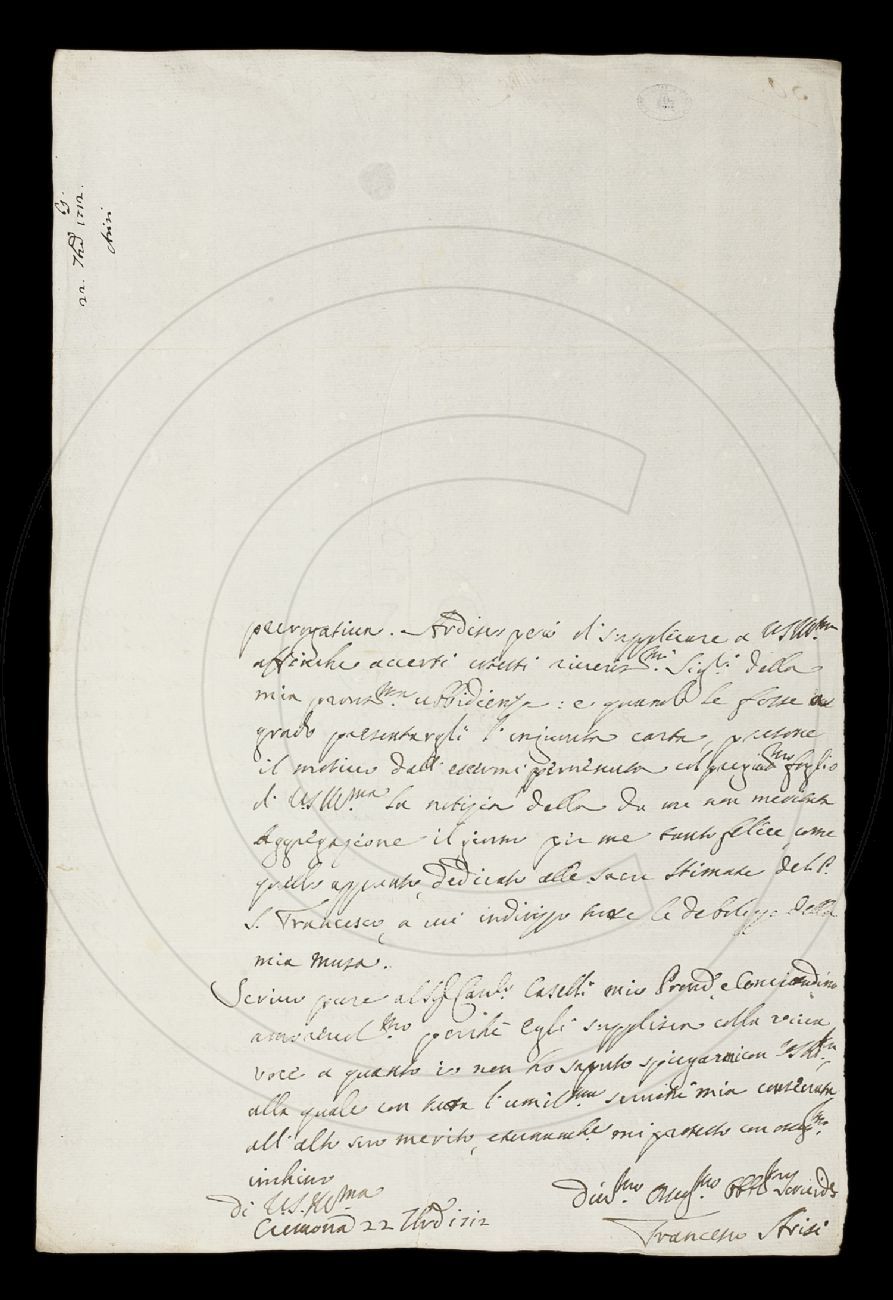 22. 7bre 1712.
Arisi
prerogativa. Ardisco però di supplicare a VS Illma
affinche accerti cotesti riveritmi Sigri della
mia prontma ubbidienza: e quando le fosse a
grado presentargli l'ingiunta carta, presone
il motivo dall'essermi pervenuta col pregiatmo foglio
di VS Illma la notizia della da me non meritata
Aggregazione il giorno per me tanto felice, come
quello appunto, dedicato alle sacre Stimate del P.
S. Francesco, a cui indirizzo tutte le debolezze della
mia musa.
Scrivo pure al Sigr Cavr Caselli mio Prond. e Concittadino
amorevolmo perchè egli supplisca colla viva
voce a quanto io non ho saputo spiegarmi con VS Illma,
alla quale con tutta l'umilma servitù mia consecrata
all'alto suo merito, eternamente mi protesto con osseqmo
inchino
di V.S. Illma
Cremona 22 7bre 1712
Divmo Osseqmo Obblmo Servide
Francesco Arisi